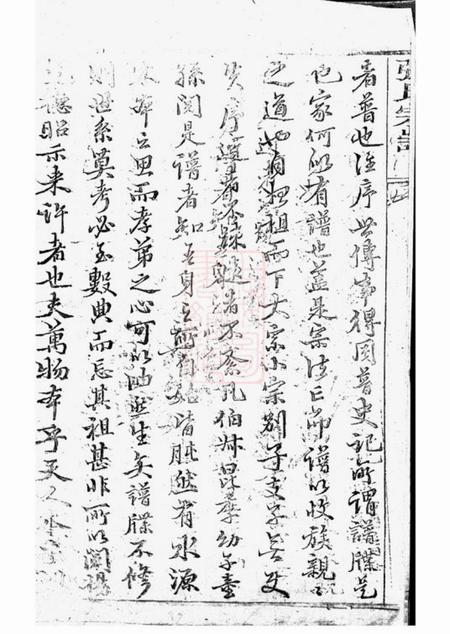 張氏宗譜
者普也注序世傳事得周普史記所謂譜牒是
也家何以有譜也蓋是宗法亡而譜以收族親親
之道也自始祖而下大宗小宗別子支子長支
次序遵者不紊孔伯叔昆季幼子童
孫閱是譜者知吾身之所自始皆肫然有水源
木本之思而孝弟之心可以油然生矣譜牒不修
則世系莫考必至數典而忘其祖甚非所以
聽昭示來許者也夫萬物本乎天人